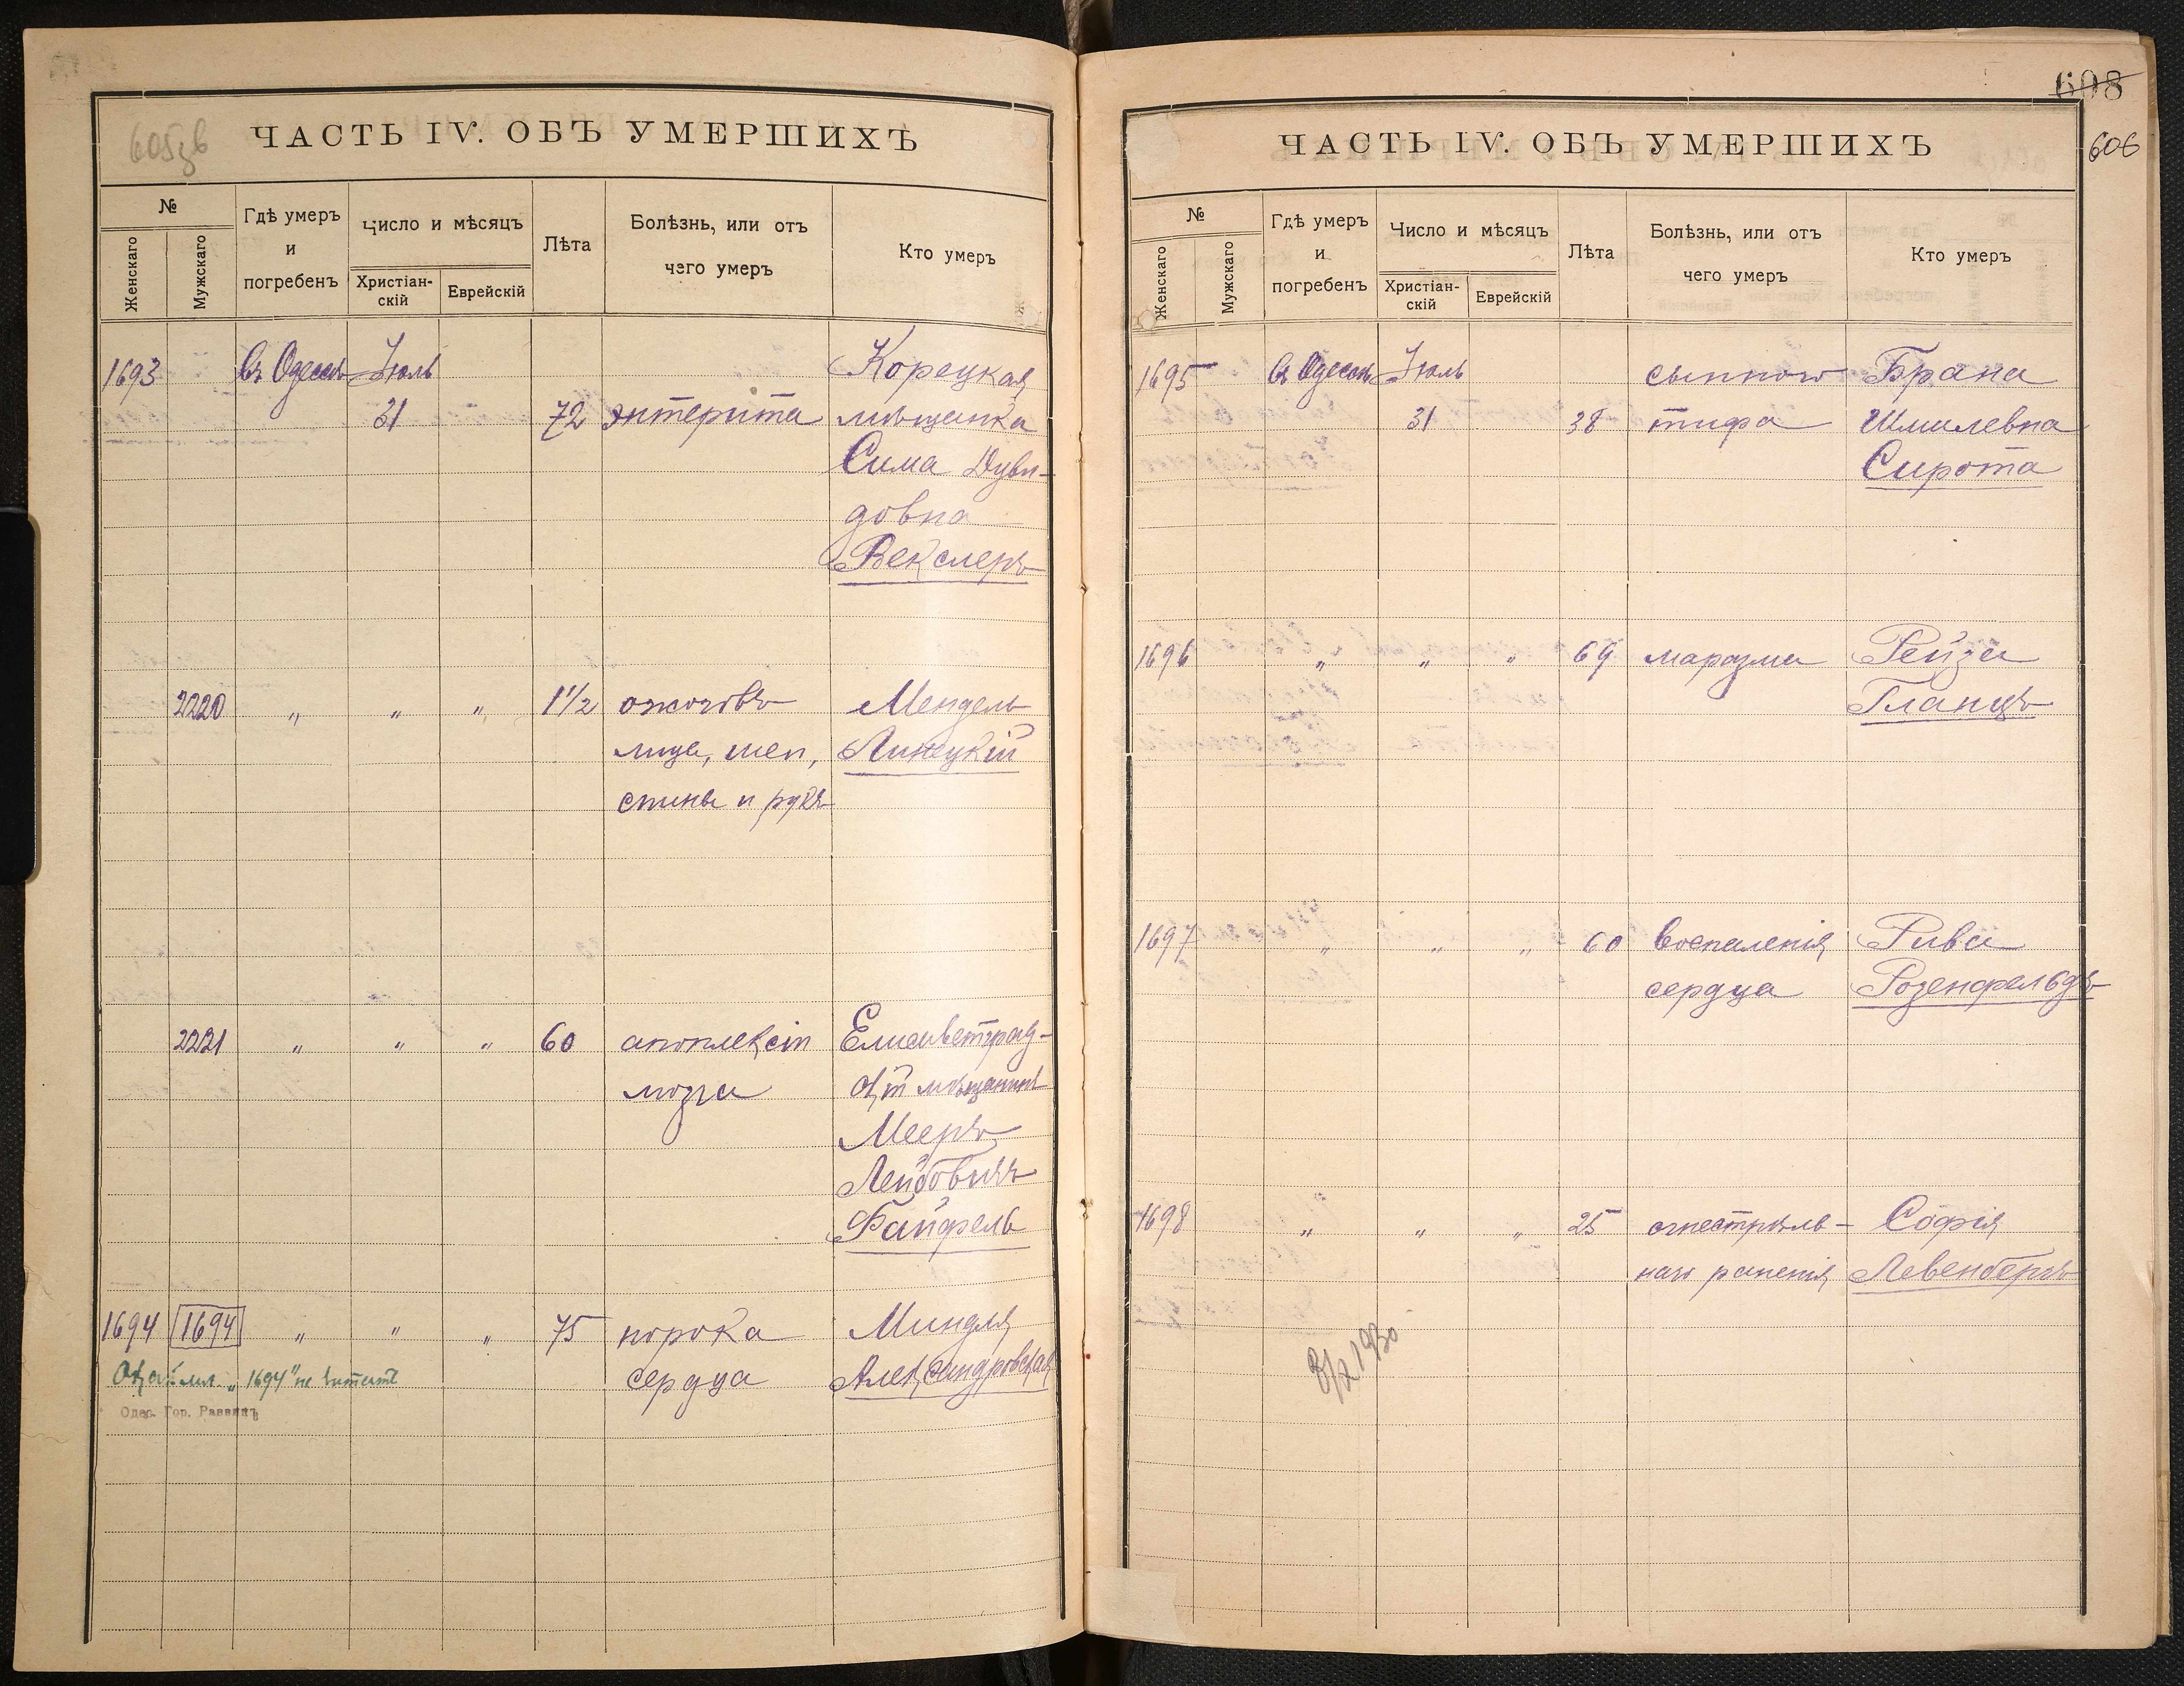 605зв
ЧАСТЬ IV. ОБЪ УМЕРШИХЪ
№
Женскаго
Мужскаго
Гдѣ умеръ
и
погребенъ
Число и мѣсяцъ
Христіан-
скій
Еврейскій
Лѣта
Болѣзнь, или отъ
чего умеръ
Кто умеръ
1693 Въ Одессѣ Іюль Корецкая
31 72 энтерита мѣщанка
Сима Дуви-
довна
Векслеръ
2220 " " " 1 1/2 ожоговъ Мендель
лица, шеи, Линецкій
спины и рукъ
2221 " " " 60 апоплексіи Елисаветград-
мозга скій мѣщанинъ
Мееръ
Лейбовичъ
Файфель
1694 1694 " " " 75 порока Миндля
"1694" не читать сердца Александровская
Одес. Гор. Раввинъ
608
606
ЧАСТЬ IV. ОБЪ УМЕРШИХЪ
№
Женскаго
Мужскаго
Гдѣ умеръ
и
погребенъ
Число и мѣсяцъ
Христіан-
скій
Еврейскій
Лѣта
Болѣзнь, или отъ
чего умеръ
Кто умеръ
1695 Въ Одессѣ Іюль сыпного Брана
31 38 тифа Шмилевна
Сирота
1696 " " " 69 маразма Рейза
Гланцъ
1697 " " " 60 воспаленія Рива
сердца Розенфельдъ
1698 " " " 25 огнестрѣль- Софія
наго раненія Левенбергъ